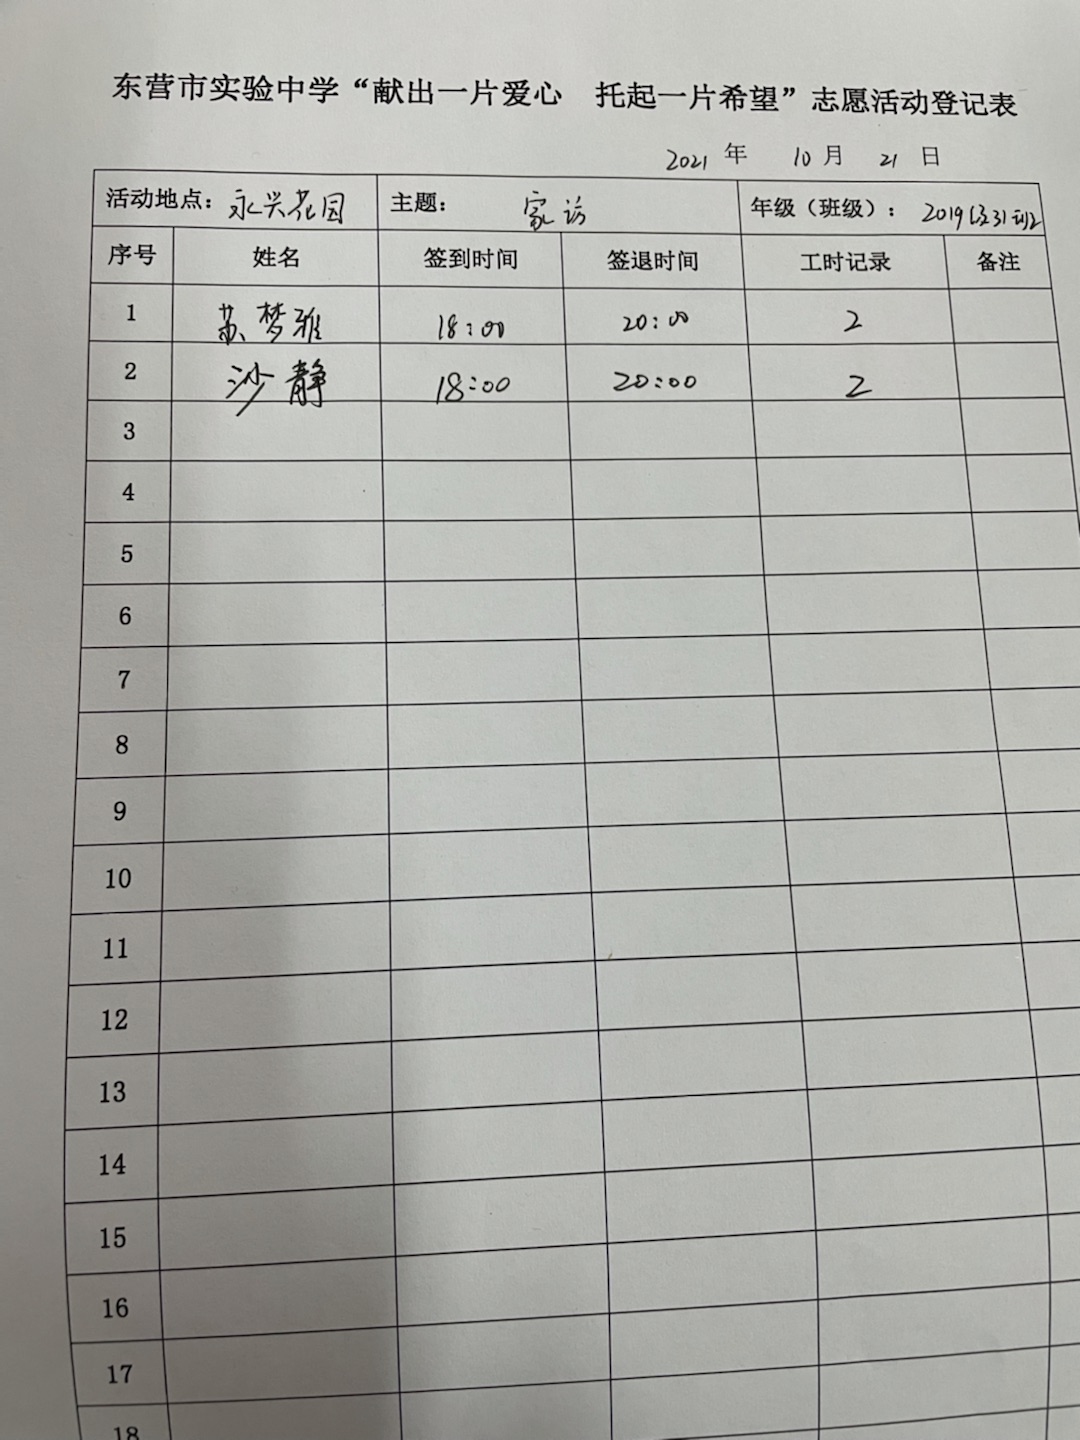 东营市实验中学“献出一片爱心 托起一片希望”志愿活动登记表
2021 年 10 月 21 日
活动地点：永兴花园 主题：家访 年级（班级）：2019级31班
序号 姓名 签到时间 签退时间 工时记录 备注
1 苏梦雅 18:00 20:00 2
2 沙静 18:00 20:00 2
3
4
5
6
7
8
9
10
11
12
13
14
15
16
17
18